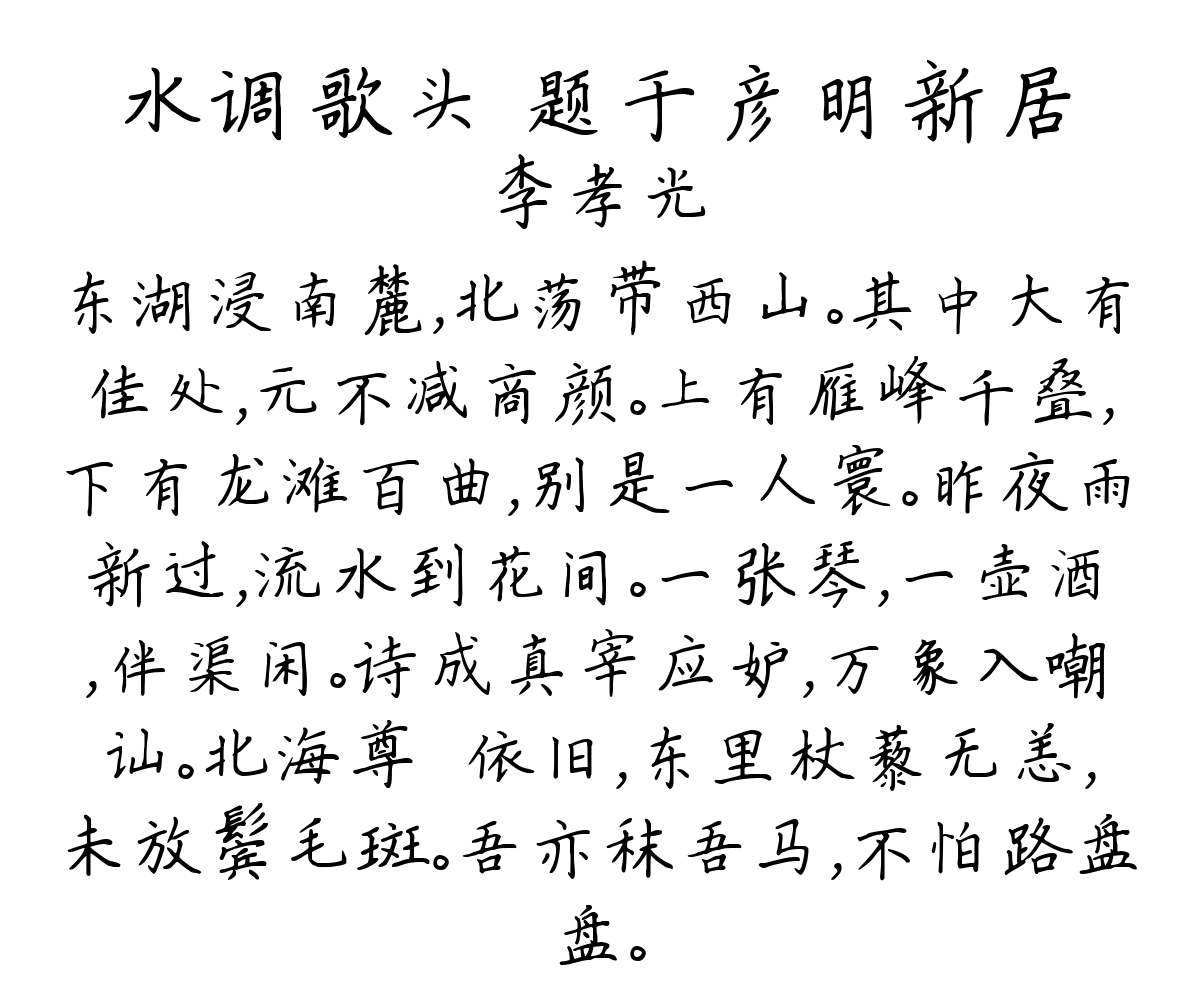 水调歌头 题于彦明新居
李孝光
东湖浸南麓,北荡带西山。其中大有
佳处,元不减商颜。上有雁峰千叠,
下有龙滩百曲,别是一人寰。昨夜雨
新过,流水到花间。一张琴,一壶酒
,伴渠闲。诗成真宰应妒,万象入嘲
讪。北海尊 依旧,东里杖藜无恙,
未放鬓毛斑。吾亦秣吾马,不怕路盘
盘。